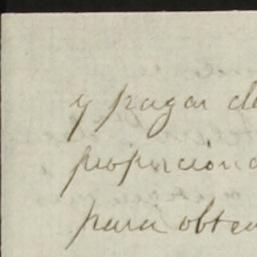 y pagar de
proporciona
para obten